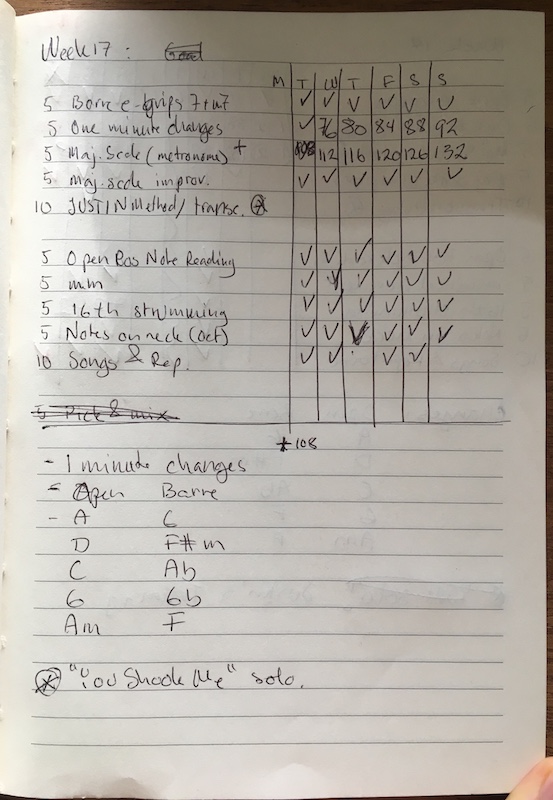 Week 17 :
M T W T F S S
5 Barre e-grips 7+m7 ✓ ✓ ✓ ✓ ✓ ✓
5 One minute changes ✓ 76 80 84 88 92
5 Maj. Scale (metronome) + 108 112 116 120 126 132
5 Maj. scale improv. ✓ ✓ ✓ ✓ ✓ ✓
10 JUSTIN Method/transc. *
5 Open Pos Note Reading ✓ ✓ ✓ ✓ ✓ ✓
5 mm ✓ ✓ ✓ ✓ ✓ ✓
5 16th strumming ✓ ✓ ✓ ✓ ✓ ✓
5 Notes on neck (oct) ✓ ✓ ✓ ✓ ✓ ✓
10 Songs & Rep. ✓ ✓ ✓ ✓
5 Pick & mix
* 108
- 1 minute changes
- Open Barre
- A G
D F#m
C Ab
G Gb
Am F
* "You Shook Me" solo.